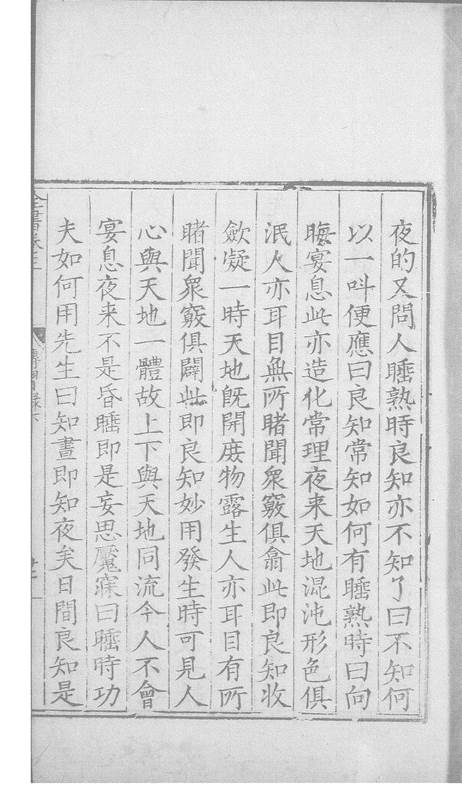 夜的又問人睡熟時良知亦不知了曰不知何
以一呌便應曰良知常知如何有睡熟時曰向
晦宴息此亦造化常理夜来天地混沌形色俱
泯人亦耳目無所睹聞衆竅俱翕此即良知收
歛凝一時天地旣開庻物露生人亦耳目有所
睹聞衆竅俱闢此即良知妙用發生時可見人
心與天地一體故上下與天地同流今人不會
宴息夜来不是昏睡即是妄思魘寐曰睡時功
夫如何用先生曰知晝即知夜矣日間良知是